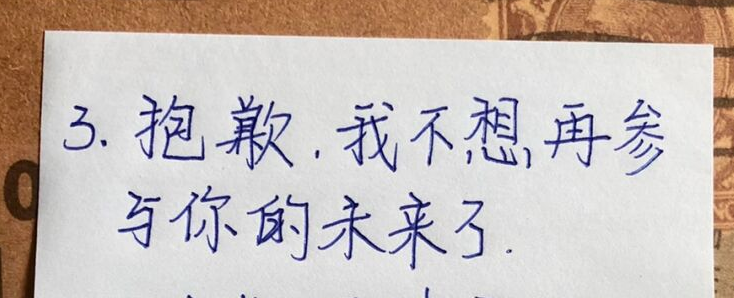 3. 抱歉,我不想再参
与你的未来了.